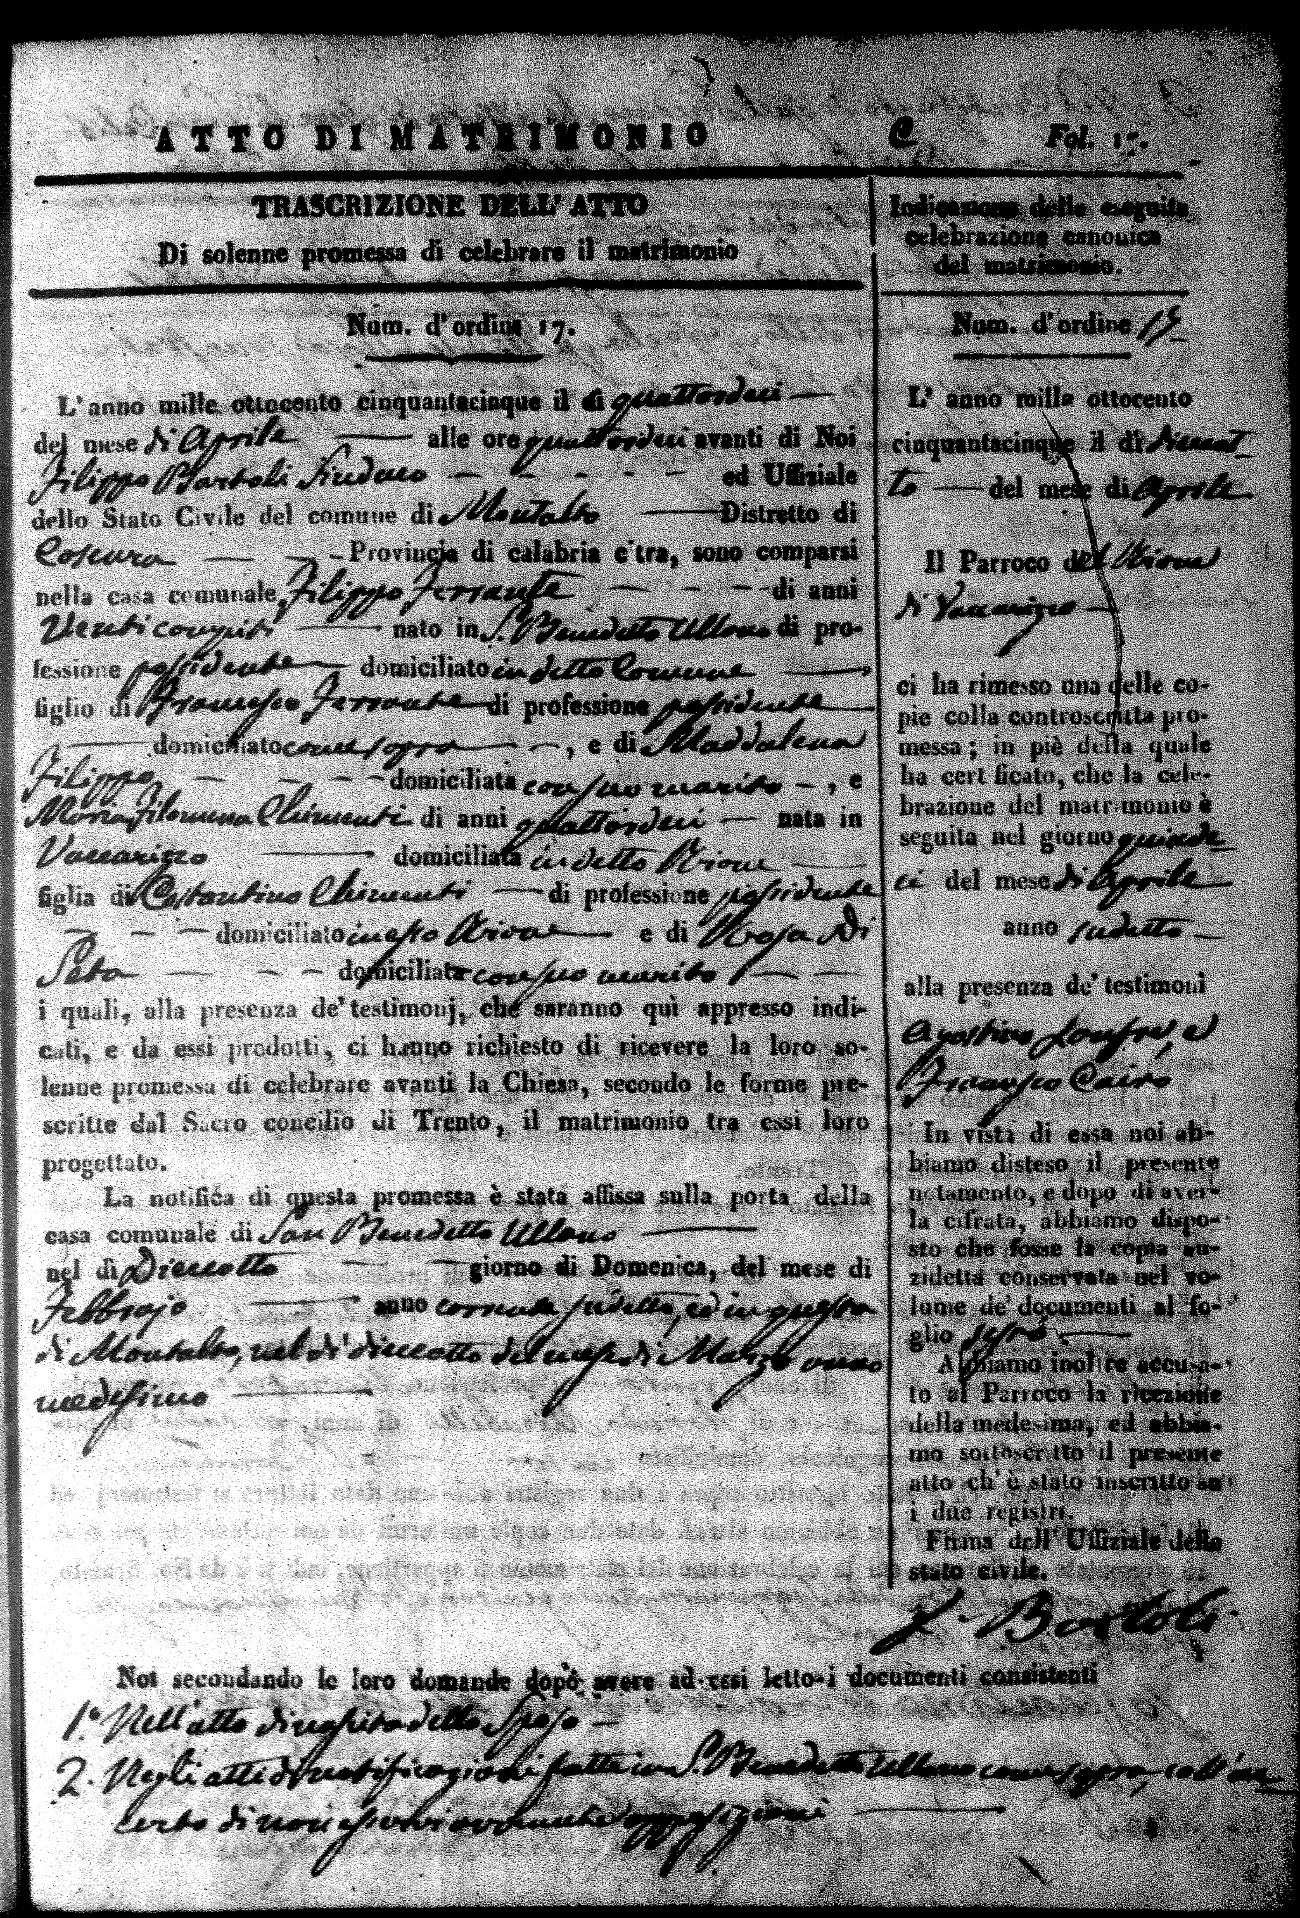 ATTO DI MATRIMONIO
Fol. 17.
TRASCRIZIONE DELL' ATTO
Di solenne promessa di celebrare il matrimonio
Num. d'ordine 17.
L'anno mille ottocento cinquantacinque il dì quattordeci
del mese di Aprile alle ore quattordeci avanti di Noi
Filippo Bartoli Sindaco ed Uffiziale
dello Stato Civile del comune di Montalto Distretto di
Cosenza Provincia di calabria citra, sono comparsi
nella casa comunale, Filippo Ferrante di anni
Venti compiti nato in S. Benedetto Ullano di pro-
fessione possidente domiciliato in detto Comune
figlio di Francesco Ferrante di professione possidente
domiciliato come sopra, e di Maddalena
Filippo domiciliata con suo marito, e
Maria Filomena Chimenti di anni quattordeci nata in
Vaccarizzo domiciliata in detto Rione
figlia di Costantino Chimenti di professione possidente
domiciliato in esso Rione e di Rosa Di
Seta domiciliata con suo marito
i quali, alla presenza de' testimonj, che saranno quì appresso indi-
cati, e da essi prodotti, ci hanno richiesto di ricevere la loro so-
lenne promessa di celebrare avanti la Chiesa, secondo le forme pre-
scritte dal Sacro concilio di Trento, il matrimonio tra essi loro
progettato.
La notifica di questa promessa è stata affissa sulla porta della
casa comunale di San Benedetto Ullano
nel dì Dieciotto giorno di Domenica, del mese di
Febbrajo anno corrente sudetto, ed in questa
di Montalto, nel dì dieciotto del mese di Marzo anno
medesimo
Indicazione della eseguita
celebrazione canonica
del matrimonio.
Num. d'ordine 15
L' anno mille ottocento
cinquantacinque il dì diciaset
te del mese di Aprile
Il Parroco del Rione
di Vaccarizzo
ci ha rimesso una delle co-
pie colla controscritta pro-
messa; in piè della quale
ha certificato, che la cele-
brazione del matrimonio è
seguita nel giorno quinde
ci del mese di Aprile
anno sudetto
alla presenza de' testimoni
Agostino, e
Francesco Cairo
In vista di essa noi ab-
biamo disteso il presente
notamento, e dopo di aver-
la cifrata, abbiamo dispo-
sto che fosse la copia an-
zidetta conservata nel vo-
lume de' documenti al fo-
glio
Abbiamo inoltre accusa-
to al Parroco la ricezione
della medesima, ed abbia-
mo sottoscritto il presente
atto ch' è stato inscritto su
i due registri.
Firma dell' Uffiziale dello
stato civile.
F. Bartoli
Noi secondando le loro domande dopo avere ad essi letto i documenti consistenti
1.° Nell'atto di nascita dello Sposo
2. Negli atti di notificazioni fatte in S. Benedetto Ullano come sopra, coll'ac
certo di non esservi avvenute opposizioni